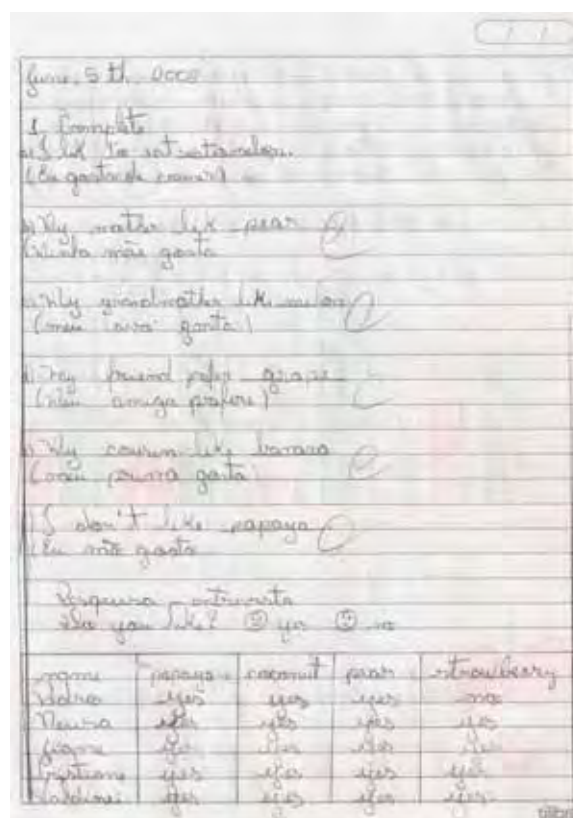 June, 5 th
1, Complete
a) I like to eat watermelon.
(Eu gosto de comer)
b) My mother like pear
(Minha mãe gosta
c) My grandmother like melon
(meu gosta)
d) My friend prefer grape
(meu amigo prefere)
e) My cousin like banana
(meu primo gosta)
f) I don't like papaya
(Eu não gosto
Pesquisa - entrevista
Do you like? yes no
name papaya coconut pear strawberry
yes yes yes no
Neusa yes yes yes yes
yes yes yes yes
Cristiane yes yes yes yes
yes yes yes yes